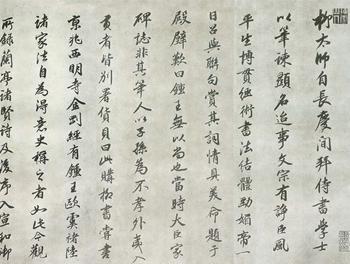 柳太師自長慶間拜侍書學士
以筆諫顯名迨事文宗有諍臣風
平生博貫經術書法結體勁媚帝一
日召與聯句賞其詞情具美命題于
殿壁歎曰鍾王無以尚也當時大臣家
碑誌非其筆人以子孫為不孝外夷入
貢者皆別署貨貝曰此購柳書嘗書
京兆西明寺金剛經有鍾王歐虞諸陸
諸家法自為得意史稱之者如此今觀
所錄蘭亭諸賢詩及後序入宣和御